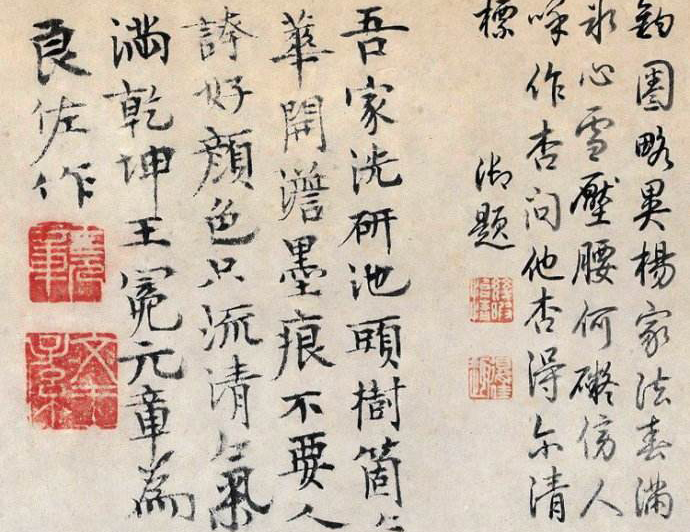 鈎圈略異楊家法春滿
冰心雪壓腰何礙傍人
呼作杏問他杏得尓清
標
御題
吾家洗研池頭樹箇〻
華開澹墨痕不要人
誇好顏色只流清氣
滿乾坤王冕元章為
良佐作
文王子孫